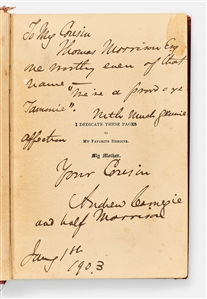 To My Cousin
Thomas Morrison Esq
one worthy even of that
name "We're a' proud o' ye
Tammie".
With Much genuine
affection
I DEDICATE THESE PAGES
TO
MY FAVORITE HEROINE,
My Mother.
Your Cousin
Andrew Carnegie
and half Morrison
Jany 1st
1903